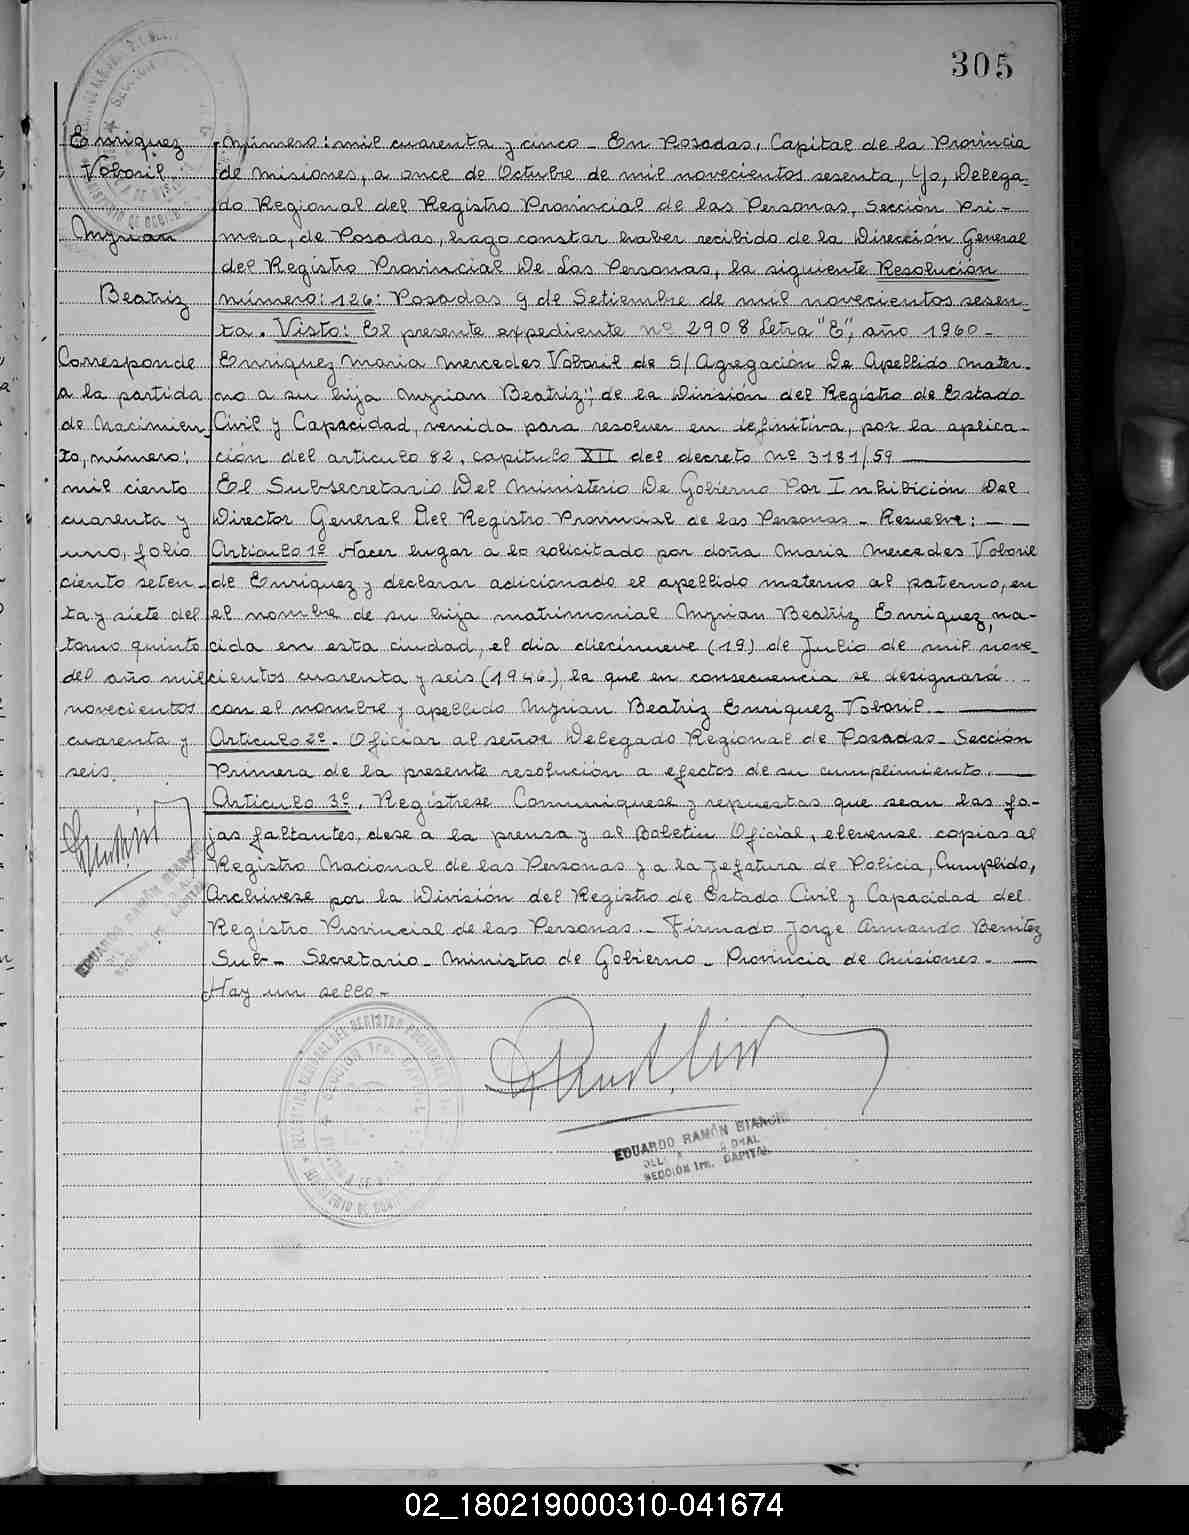 305
Enriquez
Voboril
Myrian
Beatriz
Corresponde
a la partida
de Nacimien-
to, número:
mil ciento
cuarenta y
uno, folio
ciento seten-
ta y siete del
tomo quinto
del año mil
novecientos
cuarenta y
seis.
EDUARDO RAMÓN BIANCHI
Número: mil cuarenta y cinco - En Posadas, Capital de la Provincia
de Misiones, a once de Octubre de mil novecientos sesenta, Yo, Delega-
do Regional del Registro Provincial de las Personas, Sección Pri-
mera, de Posadas, hago constar haber recibido de la Dirección General
del Registro Provincial De Las Personas, la siguiente Resolución
número: 126: Posadas 9 de Setiembre de mil novecientos sesen-
ta. Visto: El presente expediente nº 2908 Letra "E", año 1960-
Enriquez Maria Mercedes Voboril de S/ Agregación De Apellido Mater-
no a su hija Myrian Beatriz", de la División del Registro de Estado
Civil y Capacidad, venida para resolver en definitiva, por la aplica-
ción del articulo 82, capitulo XII del decreto Nº 3181/59
El Subsecretario Del Ministerio De Gobierno Por Inhibición Del
Director General Del Registro Provincial de las Personas - Resuelve: -
Articulo 1º Hacer lugar a lo solicitado por doña Maria Mercedes Voboril
de Enriquez y declarar adicionado el apellido materno al paterno, en
el nombre de su hija matrimonial Myrian Beatriz Enriquez, na-
cida en esta ciudad, el dia diecinueve (19) de Julio de mil nove-
cientos cuarenta y seis (1946.), la que en consecuencia se designará
con el nombre y apellido Myrian Beatriz Enriquez Voboril. -
Articulo 2º. Oficiar al señor Delegado Regional de Posadas - Sección
Primera de la presente resolución a efectos de su cumplimiento.
Articulo 3º. Registrese Comuniquese y repuestas que sean las fo-
jas faltantes, dese a la prensa y al Boletin Oficial, elevense copias al
Registro Nacional de las Personas y a la Jefatura de Policia, Cumplido,
Archivese por la División del Registro de Estado Civil y Capacidad del
Registro Provincial de las Personas. - Firmado Jorge Armando Benitez
Sub- Secretario - Ministro de Gobierno - Provincia de Misiones. -
Hay un sello -
EDUARDO RAMÓN BIANCHI
SECCIÓN 1ra. CAPITAL
02_180219000310-041674